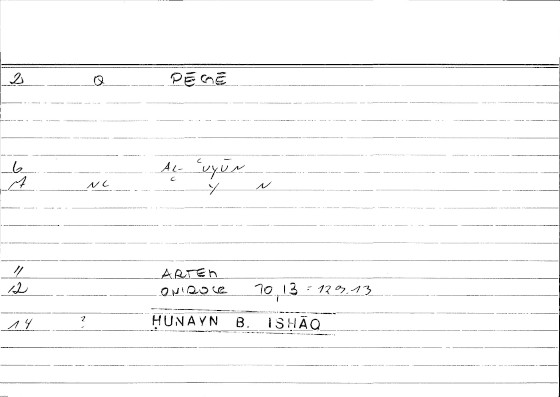 2 Q PĒGĒ
6 AL- ʿUYŪN
M NC ʿ Y N
11 ARTEM
12 ONIROCR 70,13 = 129.13
14 ? ḤUNAYN B. ISḤĀQ